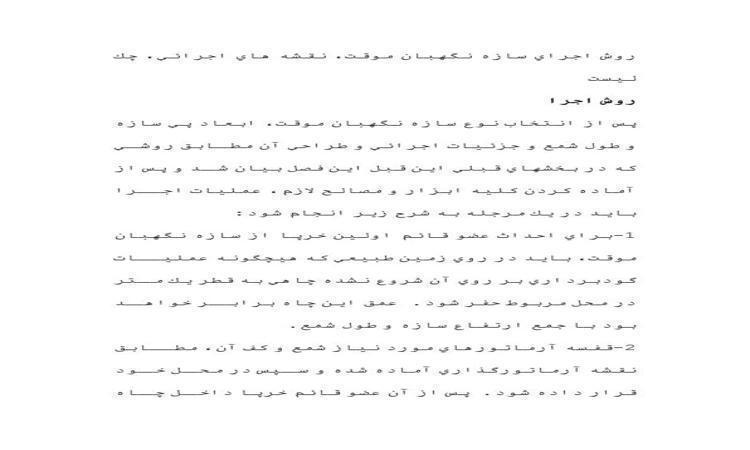 روش اجراي سازه نگهبان موقت، نقشه هاي اجرائي، چك
ليست
روش اجرا
پس از انتخاب نوع سازه نگهبان موقت، ابعاد پي سازه
و طول شمع و جزئيات اجرائي و طراحي آن مطابق روشي
كه در بخشهاي قبلي اين قبل اين فصل بيان شد و پس از
آماده كردن كليه ابزار و مصالح لازم ، عمليات اجرا
بايد در يك مرحله به شرح زير انجام شود :
1-براي احداث عضو قائم اولين خرپا از سازه نگهبان
موقت، بايد در روي زمين طبيعي كه هيچگونه عمليات
گودبرداري بر روي آن شروع نشده چاهي به قطر يك متر
در محل مربوط حفر شود . عمق اين چاه برابر خواهد
بود با جمع ارتفاع سازه و طول شمع.
2-قفسه آرماتورهاي مورد نياز شمع و كف آن، مطابق
نقشه آرماتورگذاري آماده شده و سپس در محل خود
قرار داده شود . پس از آن عضو قائم خرپا داخل چاه